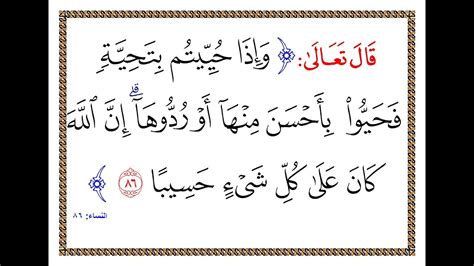 قَالَ تَعَالَىٰ: ﴿ وَإِذَا حُيِّيتُم بِتَحِيَّةٖ
فَحَيُّواْ بِأَحْسَنَ مِنْهَآ أَوْ رُدُّوهَآۗ إِنَّ ٱللَّهَ
كَانَ عَلَىٰ كُلِّ شَيْءٍ حَسِيبًا ٨٦ ﴾
النساء: ٨٦